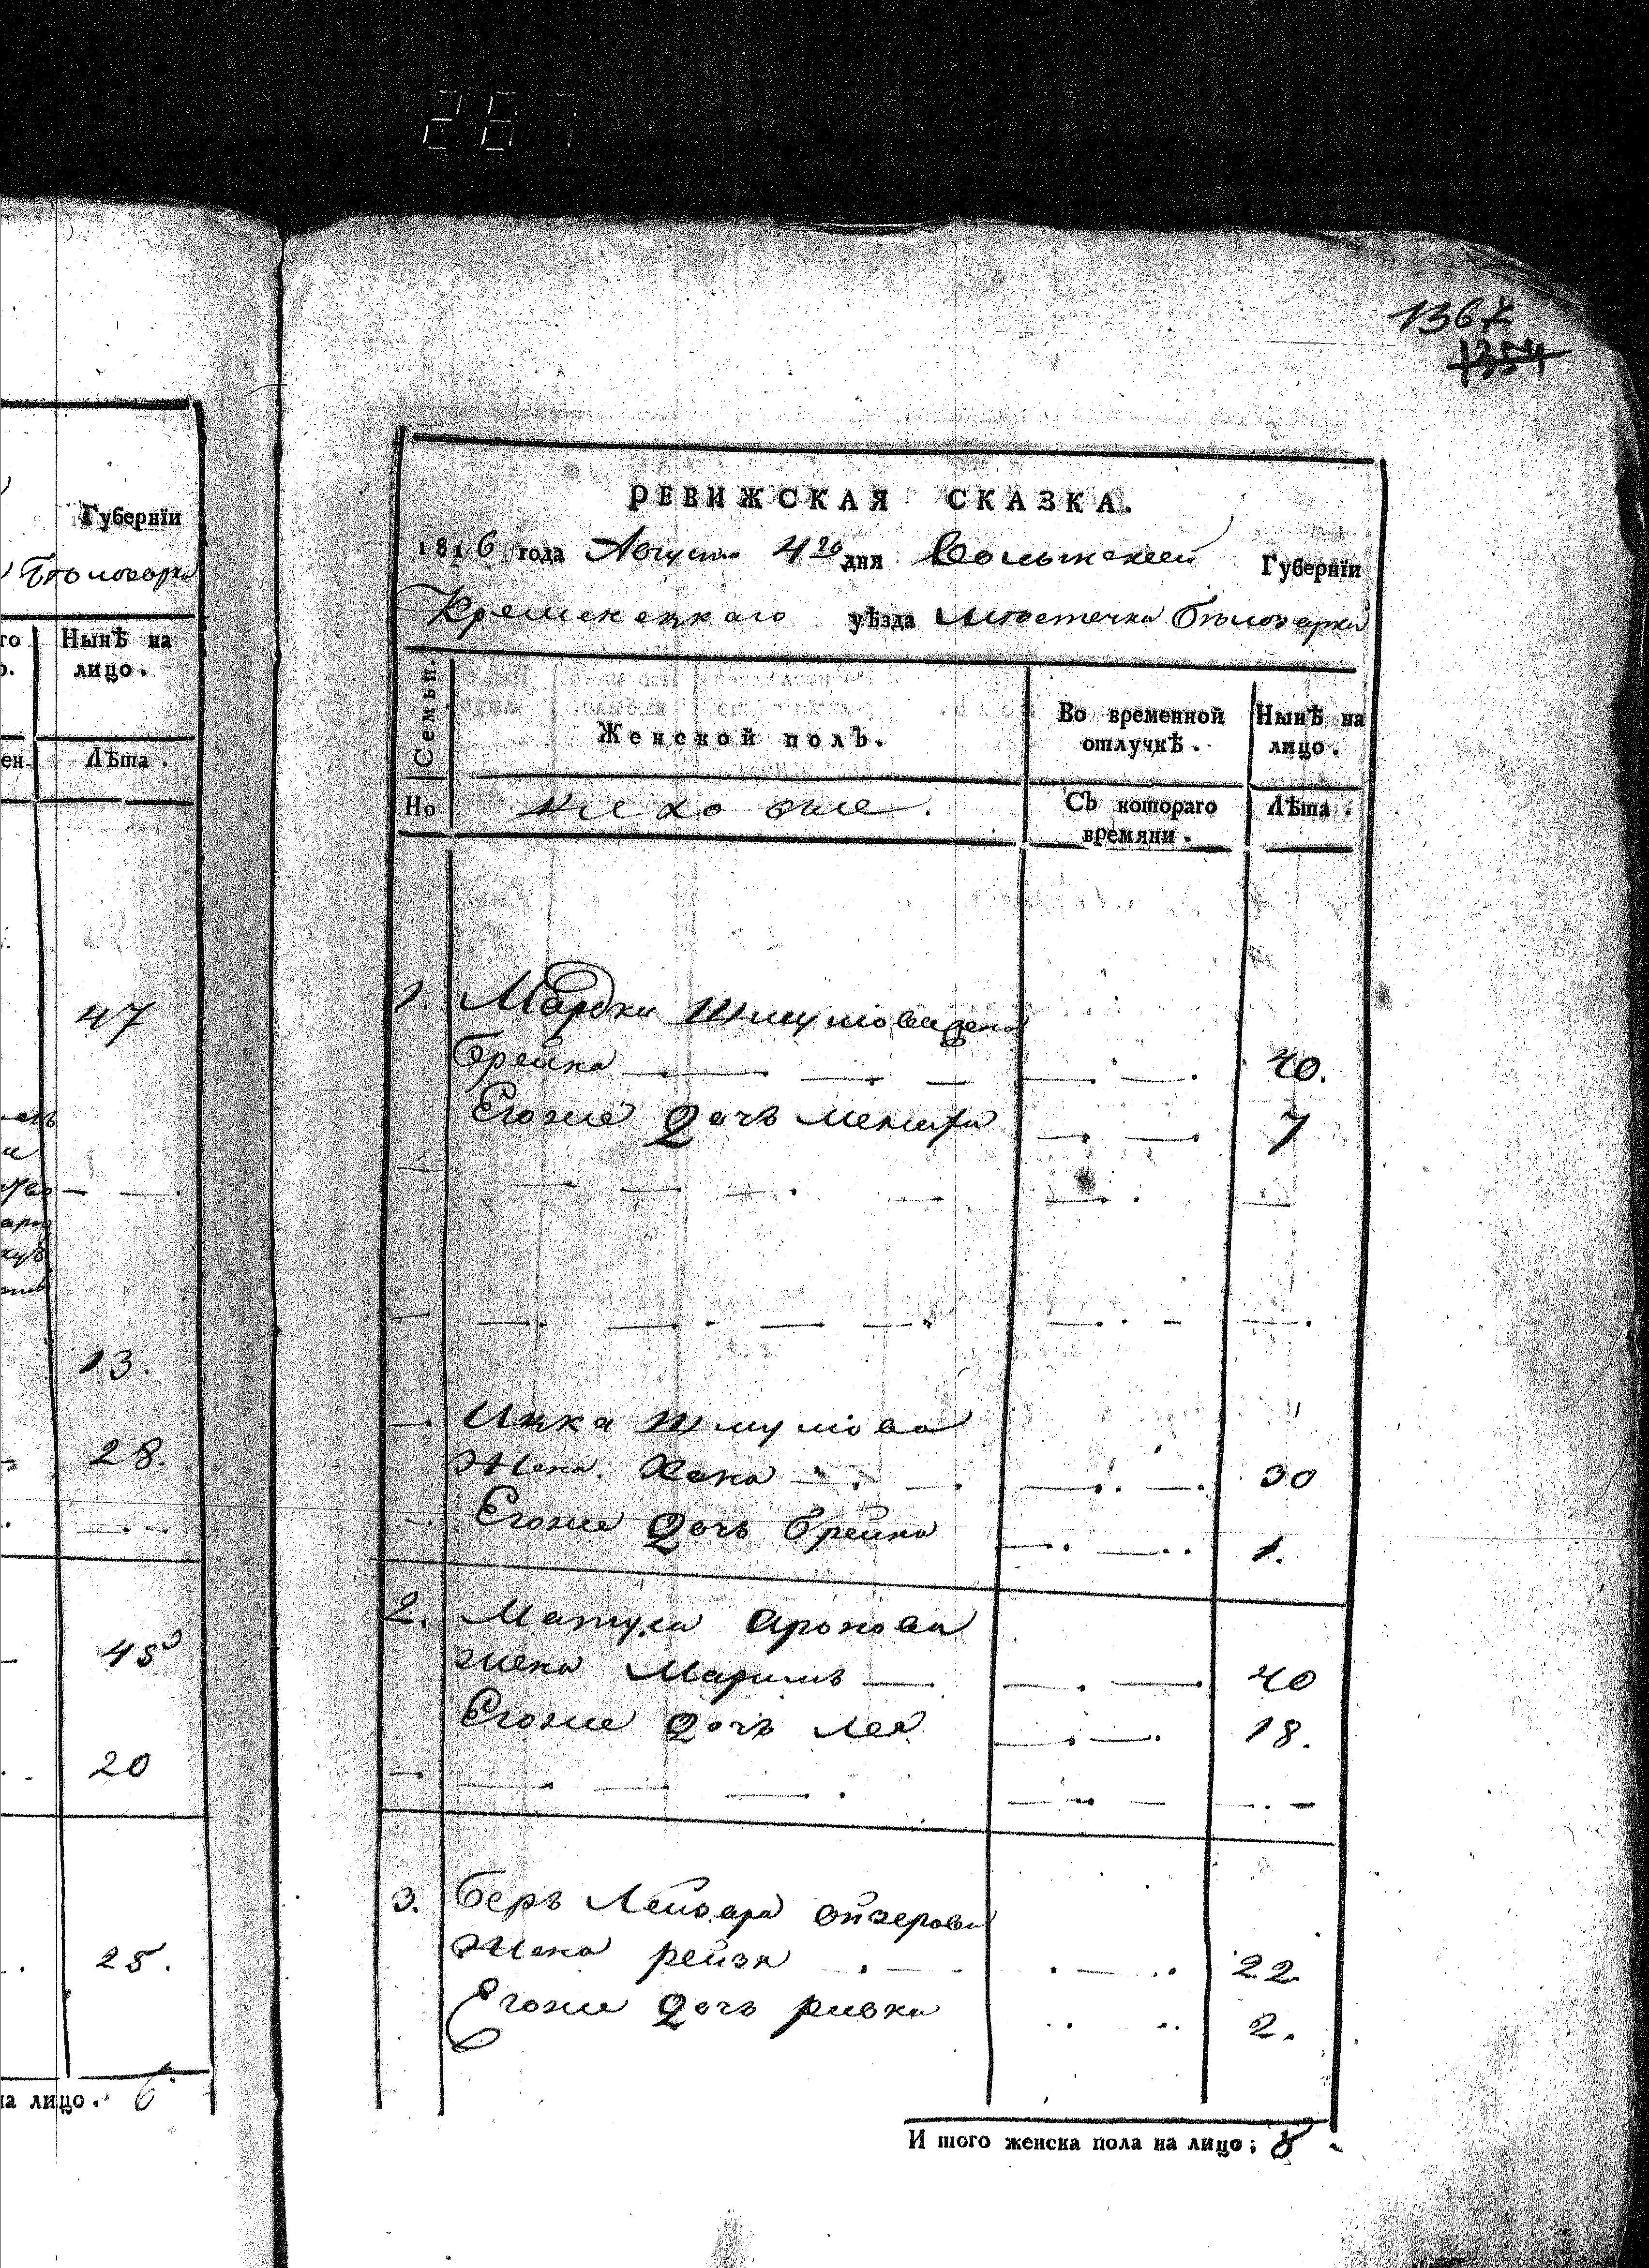 287
1367
1354
Губернїи
Бѣлозорки
го
Нынѣ на
лицо.
ен.
Лѣта.
47
13.
28.
45
20
25.
на лицо. 6
РЕВИЖСКАЯ СКАЗКА.
1816 года Августа 4го дня Волынской Губернїи
Кременецкаго уѣзда мѣстечка Бѣлозорки
Семьи.
Женской полъ.
Во временной отлучкѣ.
Нынѣ на лицо.
Но
Съ котораго времяни.
Лѣта.
1. Мардки Шмулова жена
Брейна 40.
Егоже дочь 7
Ицка Шмулова
Жена Хана 30
Егоже дочь Брейна 1.
2. Матуса Аронова
жена Маримъ 40
Егоже дочь Лея 18.
3. Беръ Лейзора Ойзерова
Жена рейзя 22.
Егоже дочь ривка 2.
И того женска пола на лицо; 8